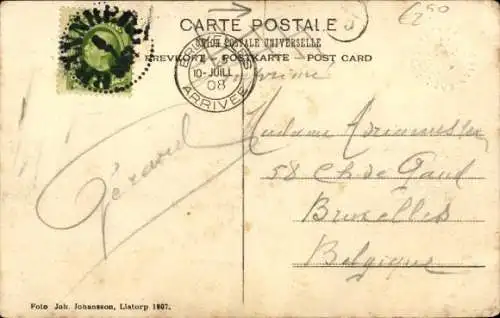 CARTE POSTALE
UNION POSTALE UNIVERSELLE
BREVKORT - POSTKARTE - POST CARD
BRUXELLES
10-JUIL
08
ARRIVÉE
€2,50
Gérard
Madame
58 Ch de Gand
Bruxelles
Belgique
Foto Joh. Johansson, Liatorp 1907.